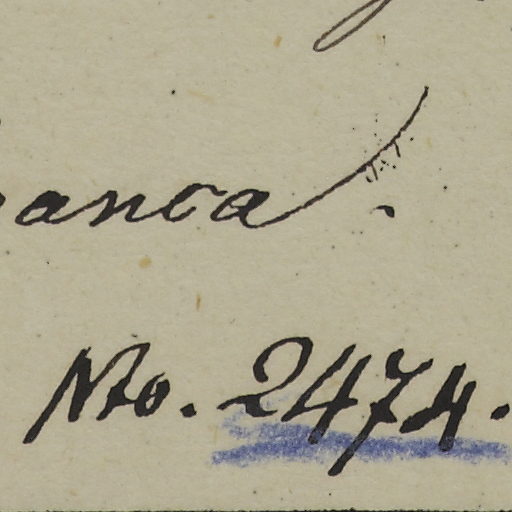 anca.
Nto. 2474.